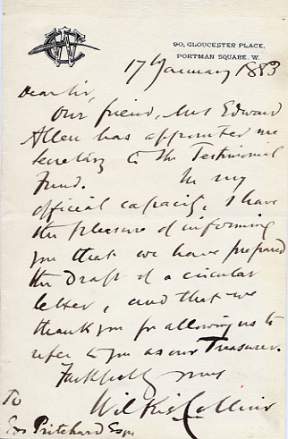 90, GLOUCESTER PLACE,
PORTMAN SQUARE. W.
17 January 1883
Dear Sir,
Our friend, Mrs Edward
Allen has appointed me
Secretary to the Testimonial
Fund. In my
official capacity, I have
the pleasure of informing
you that we have prepared
the Draft of a circular
letter, and that we
thank you for allowing us to
refer to you as our Treasurer.
Faithfully yours
Wilkie Collins
To
Pritchard Esqre